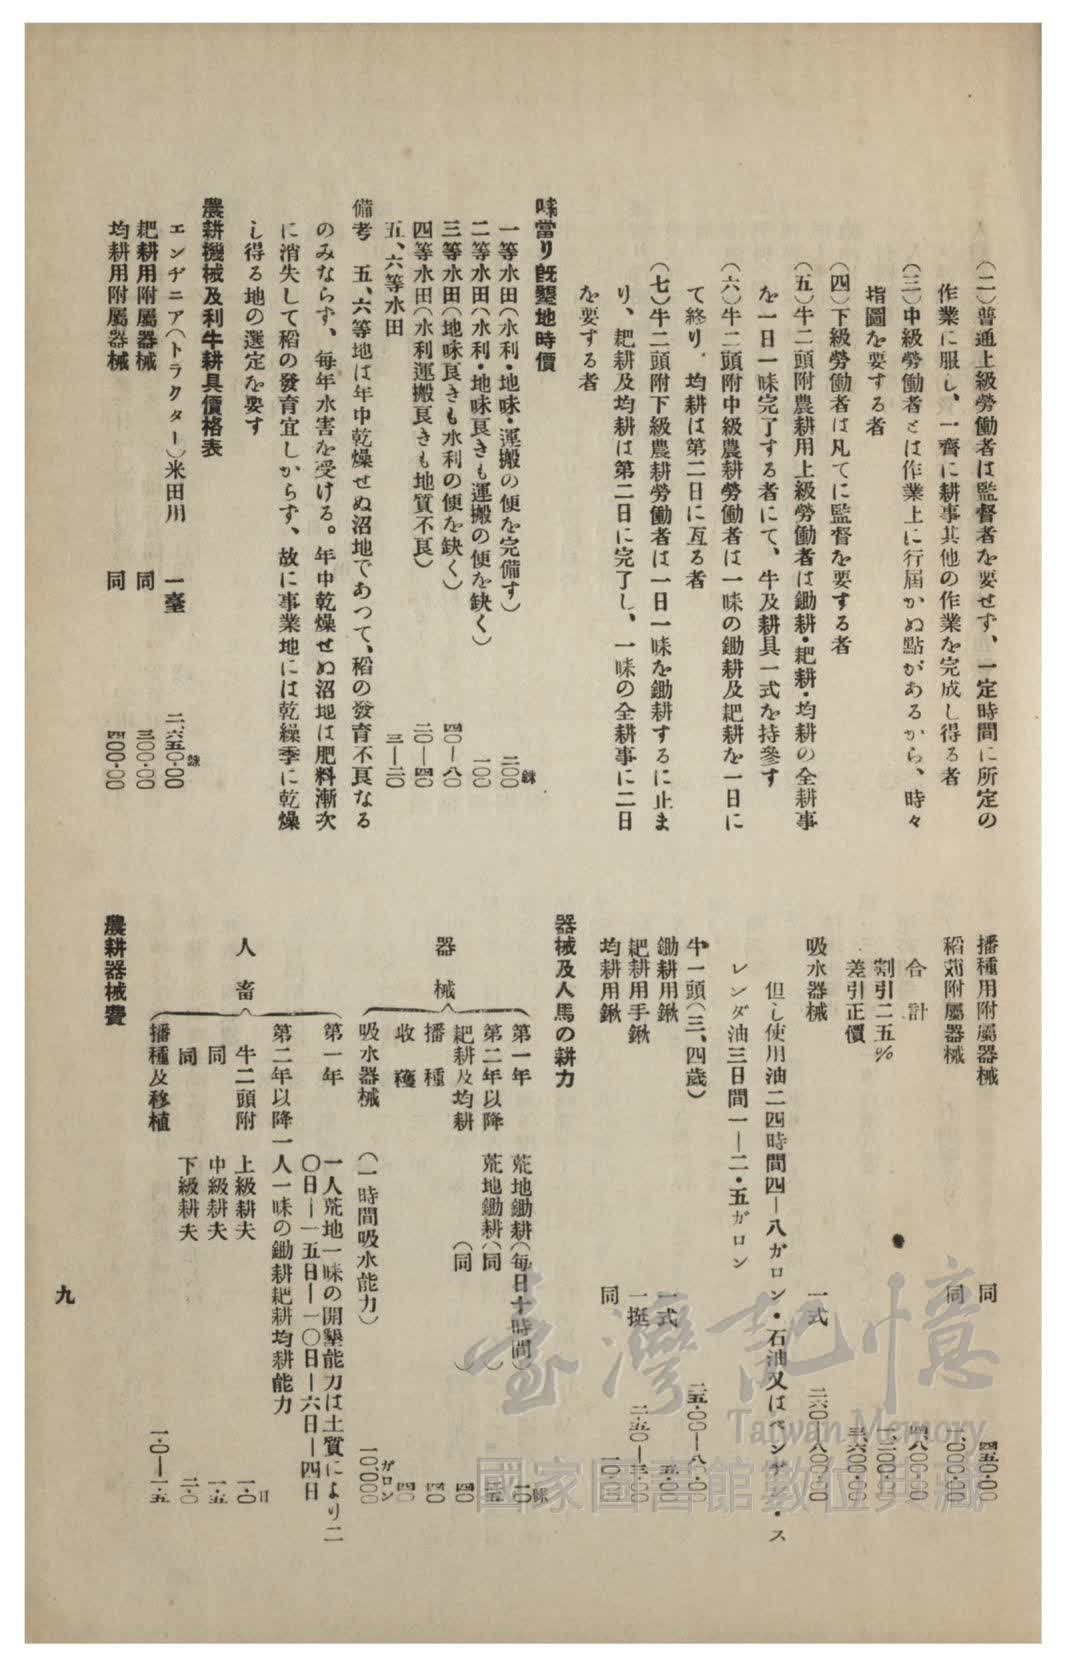 (二)普通上級勞働者は監督者を要せず、一定時間に所定の
作業に服し、一齊に耕事其他の作業を完成し得る者
(三)中級勞働者とは作業上に行屆かぬ點があるから、時々
指圖を要する者
(四)下級勞働者は凡てに監督を要する者
(五)牛二頭附農耕用上級勞働者は鋤耕・耙耕・均耕の全耕事
を一日一味完了する者にて、牛及耕具一式を持參す
(六)牛二頭附中級農耕勞働者は一味の鋤耕及耙耕を一日に
て終り、均耕は第二日に亙る者
(七)牛二頭附下級農耕勞働者は一日一味を鋤耕するに止ま
り、耙耕及均耕は第二日に完了し、一味の全耕事に二日
を要する者
味當り既墾地時價
一等水田(水利・地味・運搬の便を完備す) 二〇〇銖
二等水田(水利・地味良きも運搬の便を缺く) 一〇〇
三等水田(地味良きも水利の便を缺く) 四〇—八〇
四等水田(水利運搬良きも地質不良) 二〇—四〇
五、六等水田 三—二〇
備考 五、六等地は年中乾燥せぬ沼地であつて、稻の發育不良なる
のみならず、每年水害を受ける。年中乾燥せぬ沼地は肥料漸次
に消失して稻の發育宜しからず、故に事業地には乾繰季に乾燥
し得る地の選定を要す
農耕機械及利牛耕具價格表
エンヂニア(トラクター)米田川 一臺 二、六五〇・〇〇銖
耙耕用附屬器械 同 三〇〇・〇〇
均耕用附屬器械 同 四〇〇・〇〇
播種用附屬器械 同 四五〇・〇〇
稻苅附屬器械 同 一、〇〇〇・〇〇
合計 四、八〇〇・〇〇
割引二五% 一、二〇〇・〇〇
差引正價 三、六〇〇・〇〇
吸水器械 一式
但し使用油二四時間四—八ガロン・石油又はベンヂン・ス
レンダ油三日間一—二・五ガロン
牛一頭(三、四歲)
鋤耕用鍬 一式
耙耕用手鍬 一挺
均耕用鍬 同
器械及人馬の耕力
器械
第一年 荒地鋤耕(每日十時間) 二〇味
第二年以降 荒地鋤耕(同)
耙耕及均耕 (同) 四〇
播種 四〇
收穫 四〇
吸水器械 (一時間吸水能力) 一〇,〇〇〇ガロン
人畜
第一年 一人荒地一味の開墾能力は土質により二
〇日—一五日—一〇日—六日—四日
第二年以降一人一味の鋤耕耙耕均耕能力
牛二頭附 上級耕夫 一・〇日
同 中級耕夫 一・五
同 下級耕夫 二・〇
播種及移植 一・〇—一・五
農耕器械費
九
臺灣記憶
Taiwan Memory
國家圖書館數位典藏